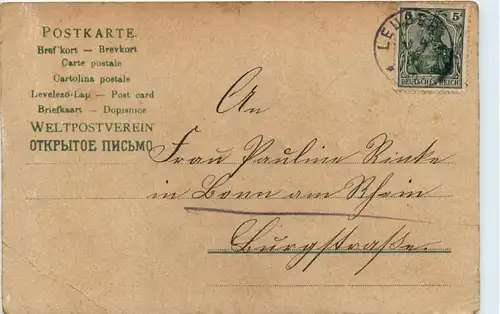 POSTKARTE.
Bref'kort — Brevkort
Carte postale
Cartolina postale
Levelező-Lap — Post card
Briefkaart — Dopisnice
WELTPOSTVEREIN
ОТКРЫТОЕ ПИСЬМО
5 5
DEUTSCHES REICH
An
Frau Pauline Rinke
in Bonn am Rhein
Burgstraße.